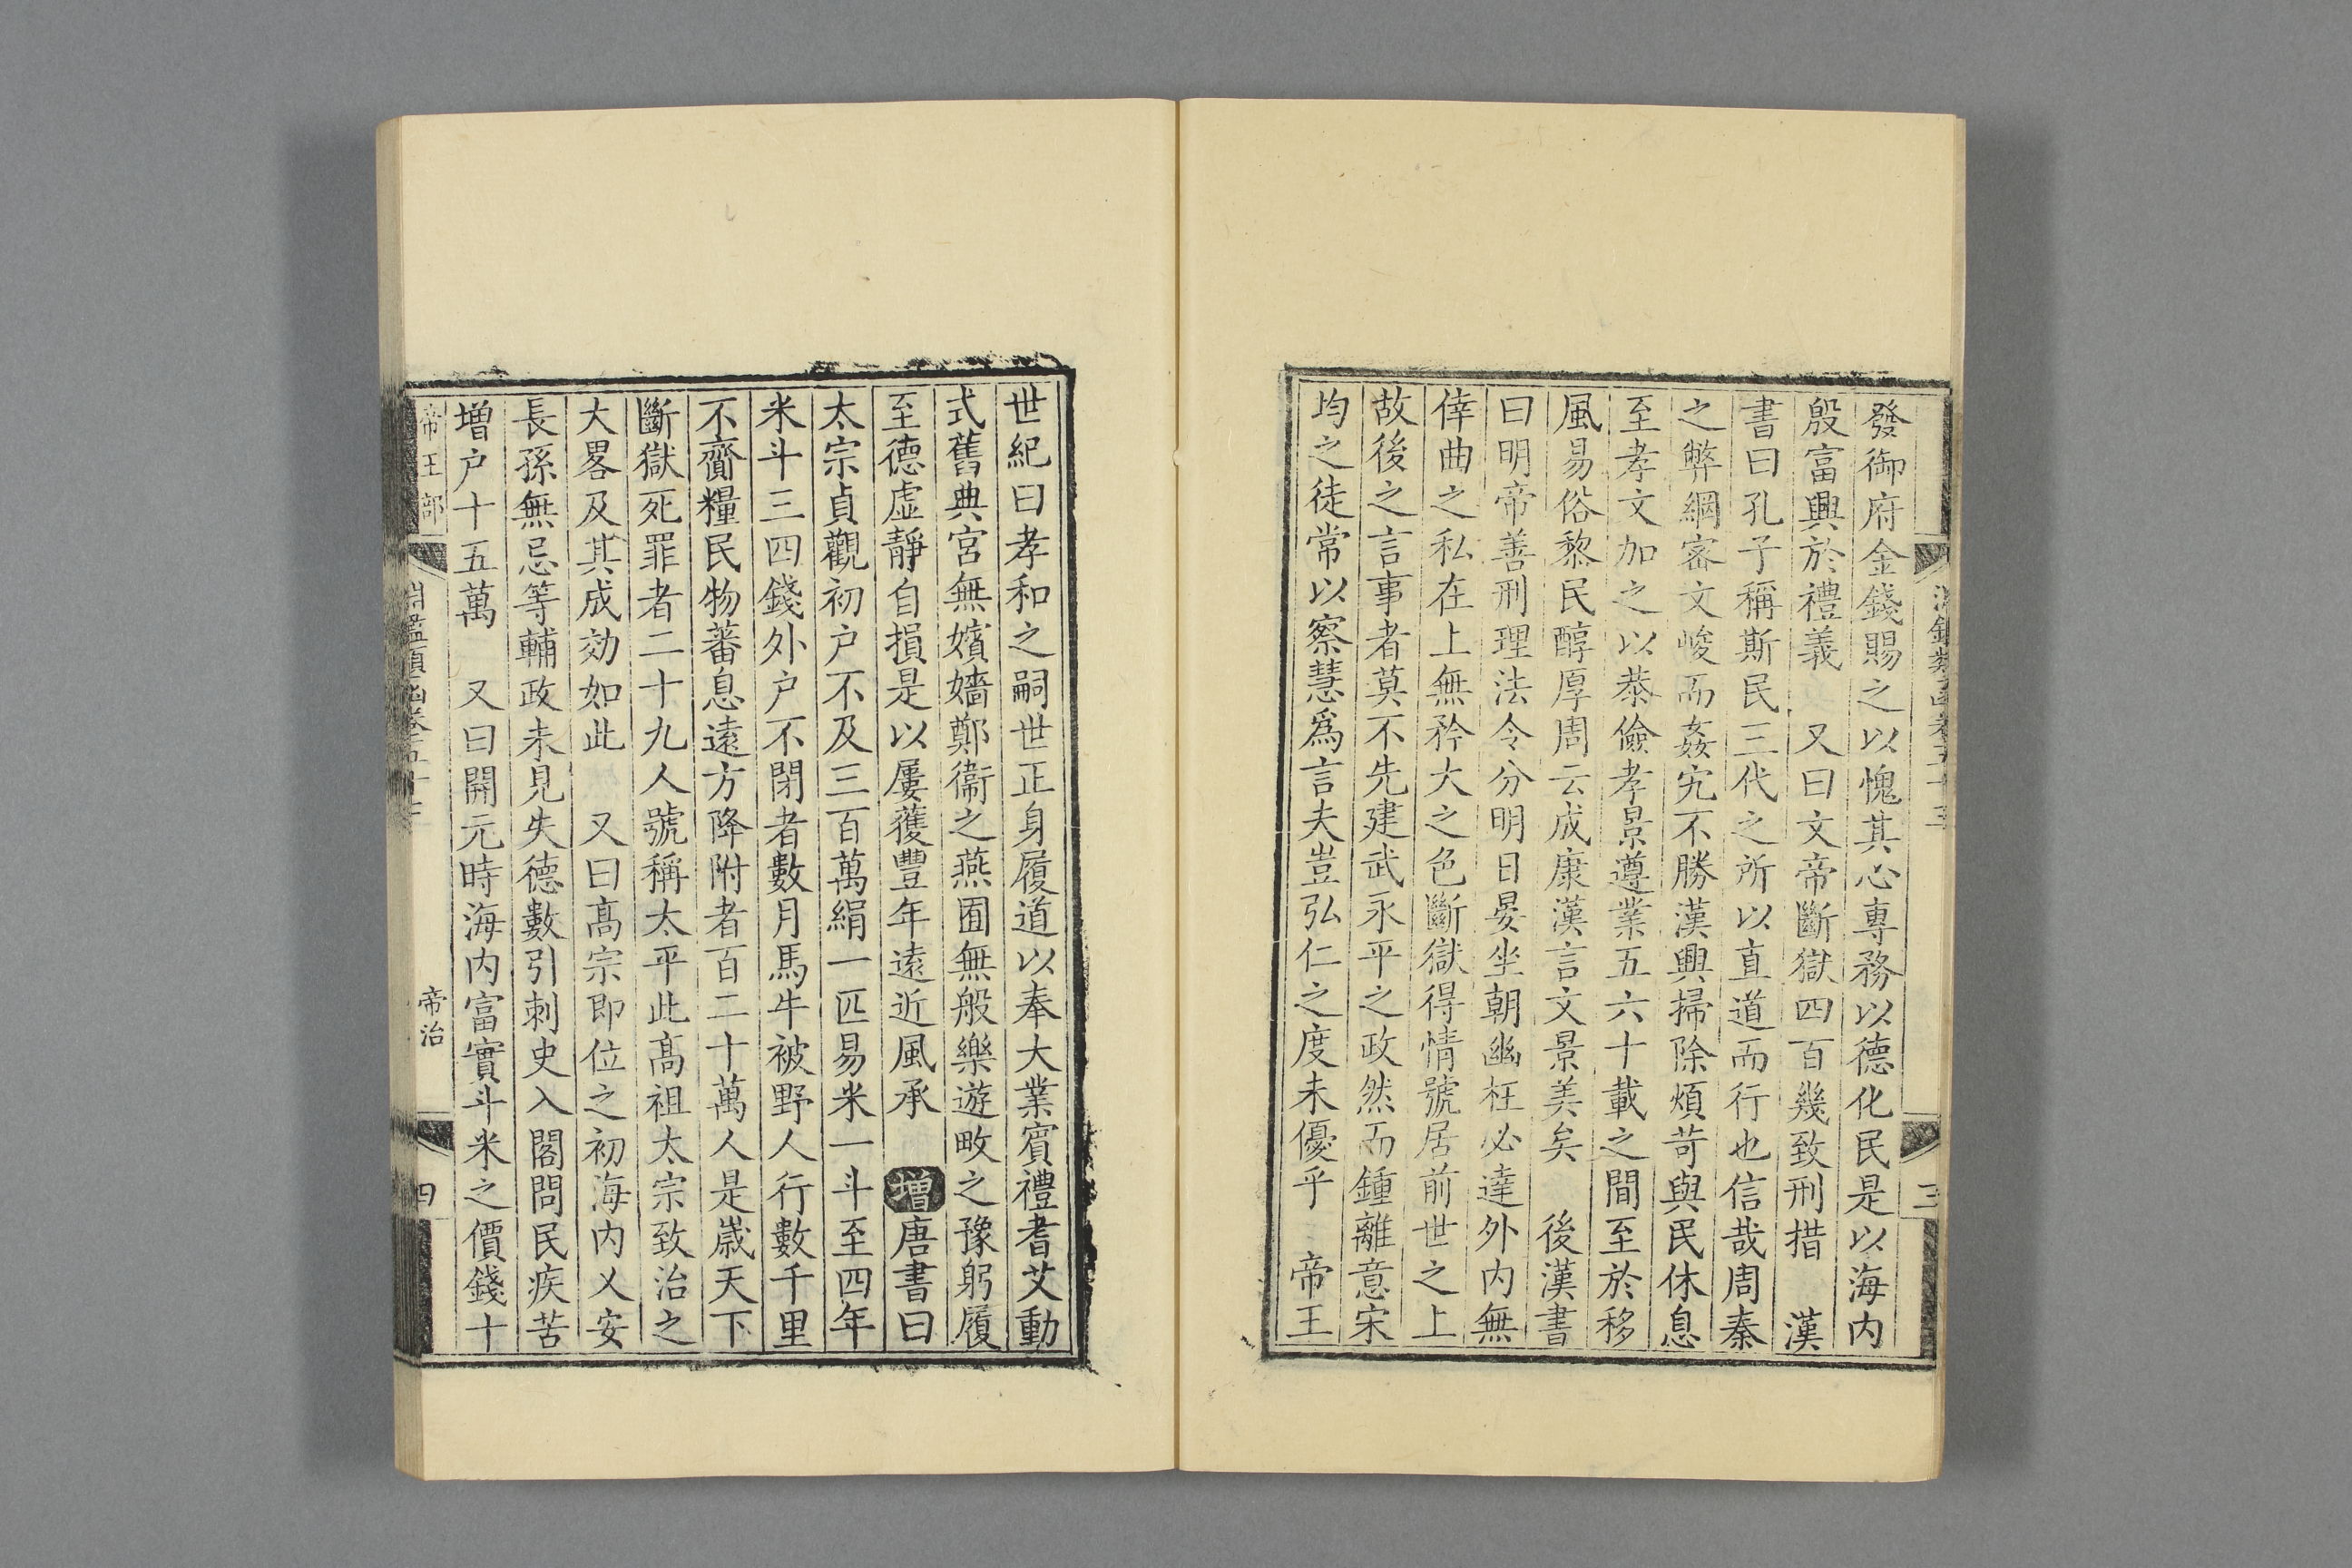 發御府金錢賜之以愧其心專務以德化民是以海内
殷富興於禮義　又曰文帝斷獄四百幾致刑措　漢
書曰孔子稱斯民三代之所以直道而行也信哉周秦
之弊網密文峻而姦宄不勝漢興掃除煩苛與民休息
至孝文加之以恭儉孝景遵業五六十載之間至於移
風易俗黎民醇厚周云成康漢言文景美矣　後漢書
曰明帝善刑理法令分明日晏坐朝幽枉必達外内無
倖曲之私在上無矜大之色斷獄得情號居前世之上
故後之言事者莫不先建武永平之政然而鍾離意宋
均之徒常以察慧爲言夫豈弘仁之度未優乎　帝王
世紀曰孝和之嗣世正身履道以奉大業賓禮耆艾動
式舊典宮無嬪嬙鄭衞之燕囿無般樂遊畋之豫躬履
至德虛靜自損是以屢獲豐年遠近風承　增唐書曰
太宗貞觀初户不及三百萬絹一匹易米一斗至四年
米斗三四錢外户不閉者數月馬牛被野人行數千里
不齎糧民物蕃息遠方降附者百二十萬人是歲天下
斷獄死罪者二十九人號稱太平此髙祖太宗致治之
大畧及其成効如此　又曰髙宗即位之初海内乂安
長孫無忌等輔政未見失德數引刺史入閣問民疾苦
增户十五萬　又曰開元時海内富實斗米之價錢十
帝王部
淵鑑類函卷五十三
帝治
四